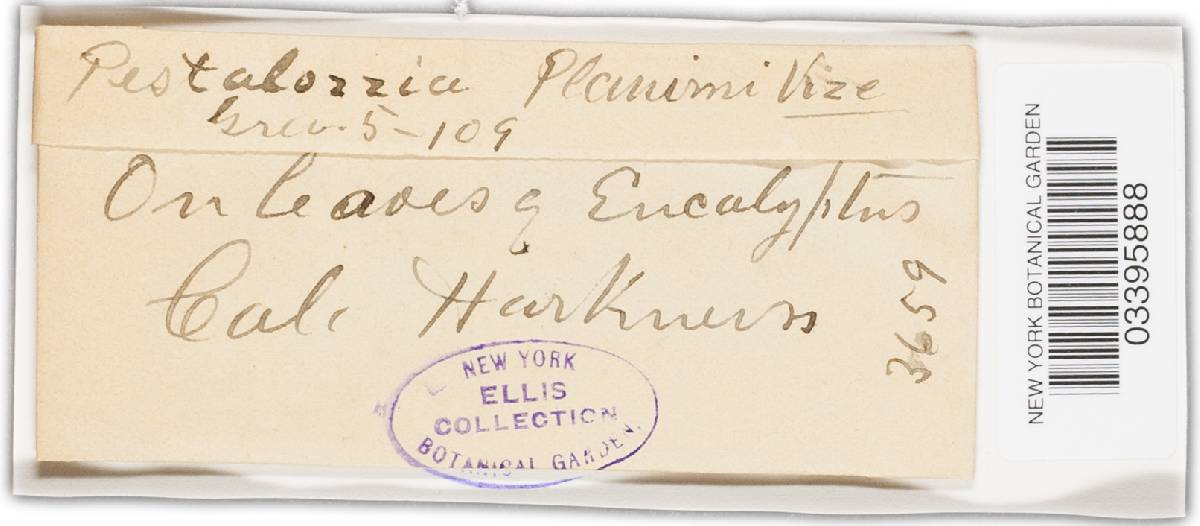 Pestalozzia Planimi Vize
Grev. 5-109
On leaves of Eucalyptus
Cal. Harkness
3659
NEW YORK
ELLIS
COLLECTION
BOTANICAL GARDEN.
NEW YORK BOTANICAL GARDEN
03395888